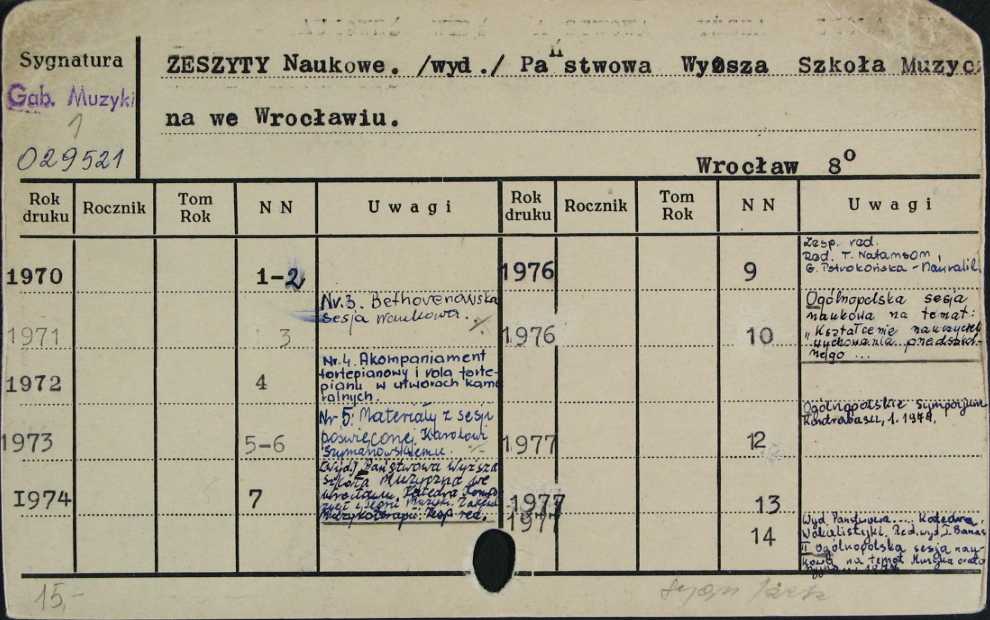 Sygnatura
Gab. Muzyki
1
029521
ZESZYTY Naukowe. /wyd./ Państwowa Wyższa Szkoła Muzycz
na we Wrocławiu.
Wrocław 8°
Rok druku Rocznik Tom Rok NN Uwagi Rok druku Rocznik Tom Rok NN Uwagi
1970 1-2
Nr. 3. Bethovenowska
sesja naukowa.
1971 3
Nr. 4. Akompaniament
fortepianowy i rola forte-
pianu w utworach kame
ralnych.
1972 4
Nr 5. Materiały z sesji
poświęconej Karolowi
Szymanowskiemu.
1973 5-6
[Wyd.] Państwowa Wyższa
Szkoła Muzyczna we
Wrocławiu, Katedra Kompo
Muzykoterapii. Zesp. red.
1974 7
1976 9
Zesp. red.
Red. T. Natanson,
G. Postrokońska-
1976 10
Ogólnopolska sesja
naukowa na temat:
"Kształcenie nauczycieli
wychowania przedszkol-
nego ...
1977 12
Ogólnopolskie Sympozjum
Kontrabasu, 1. 1974.
1977 13
1977 14
Wyd. Państwowa .... Katedra
Wokalistyki. Red. wyd. I. Banaś
II Ogólnopolska sesja nau-
kowa na temat Muzyka
15,-